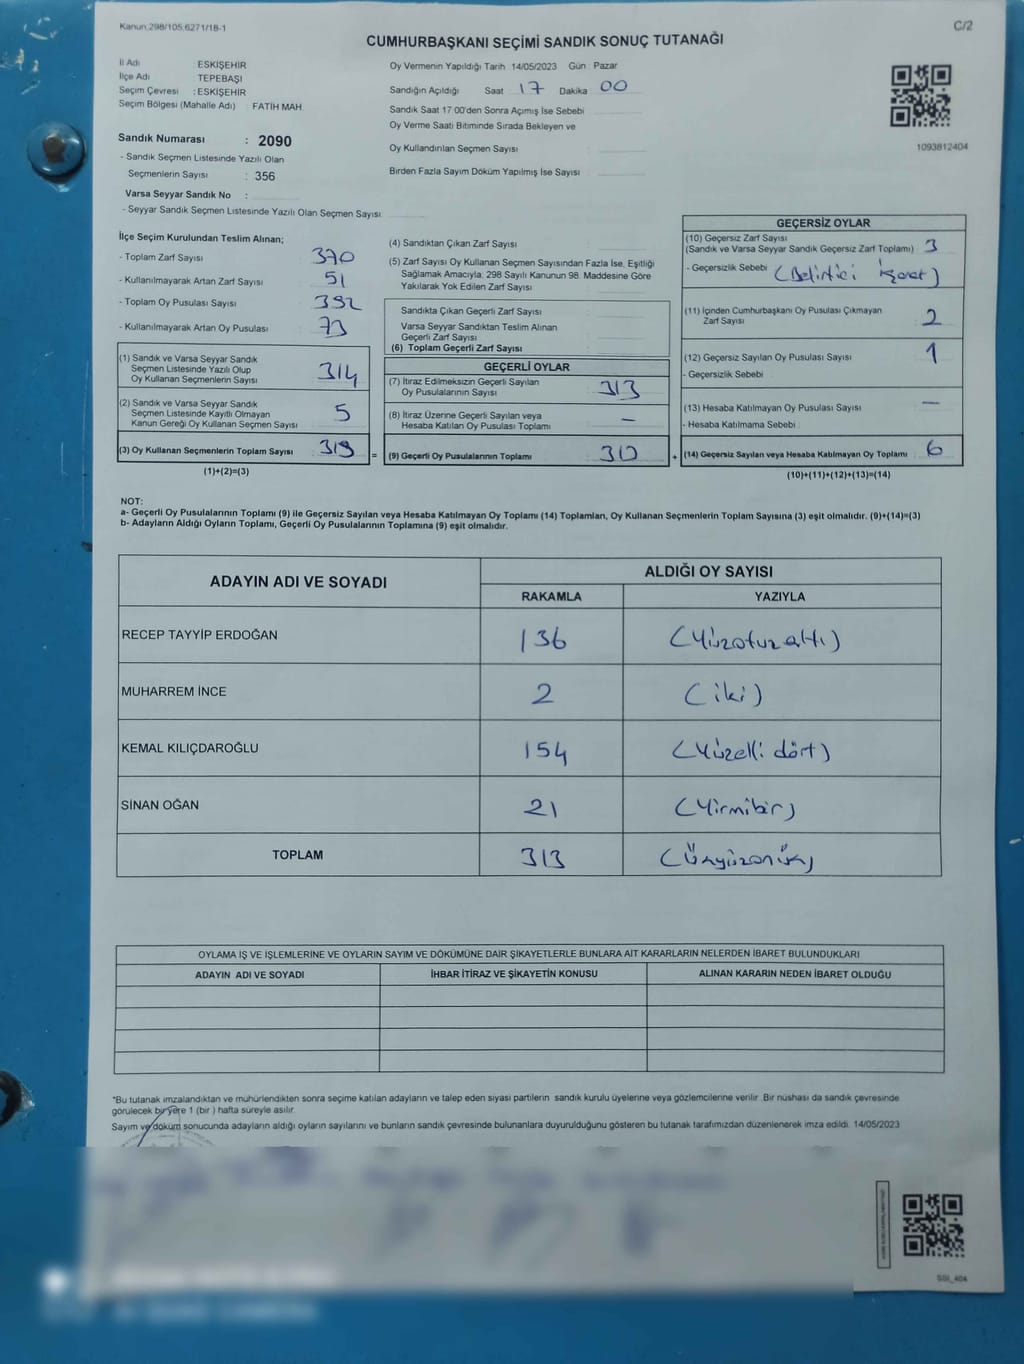 Kanun.298/105.6271/18-1
C/2
CUMHURBAŞKANI SEÇİMİ SANDIK SONUÇ TUTANAĞI
İl Adı ESKİŞEHİR
İlçe Adı TEPEBAŞI
Seçim Çevresi : ESKİŞEHİR
Seçim Bölgesi (Mahalle Adı) : FATİH MAH.
Sandık Numarası : 2090
- Sandık Seçmen Listesinde Yazılı Olan
Seçmenlerin Sayısı : 356
Varsa Seyyar Sandık No :
- Seyyar Sandık Seçmen Listesinde Yazılı Olan Seçmen Sayısı
Oy Vermenin Yapıldığı Tarih 14/05/2023 Gün Pazar
Sandığın Açıldığı Saat 17 Dakika 00
Sandık Saat 17:00'den Sonra Açımış İse Sebebi
Oy Verme Saati Bitiminde Sırada Bekleyen ve
Oy Kullandırılan Seçmen Sayısı :
Birden Fazla Sayım Döküm Yapılmış İse Sayısı :
1093812404
İlçe Seçim Kurulundan Teslim Alınan;
- Toplam Zarf Sayısı : 370
- Kullanılmayarak Artan Zarf Sayısı : 51
- Toplam Oy Pusulası Sayısı : 392
- Kullanılmayarak Artan Oy Pusulası : 73
(1) Sandık ve Varsa Seyyar Sandık
Seçmen Listesinde Yazılı Olup
Oy Kullanan Seçmenlerin Sayısı : 314
(2) Sandık ve Varsa Seyyar Sandık
Seçmen Listesinde Kayıtlı Olmayan
Kanun Gereği Oy Kullanan Seçmen Sayısı : 5
(3) Oy Kullanan Seçmenlerin Toplam Sayısı : 319 =
(1)+(2)=(3)
(4) Sandıktan Çıkan Zarf Sayısı :
(5) Zarf Sayısı Oy Kullanan Seçmen Sayısından Fazla İse, Eşitliği
Sağlamak Amacıyla; 298 Sayılı Kanunun 98. Maddesine Göre
Yakılarak Yok Edilen Zarf Sayısı :
Sandıkta Çıkan Geçerli Zarf Sayısı :
Varsa Seyyar Sandıktan Teslim Alınan
Geçerli Zarf Sayısı :
(6) Toplam Geçerli Zarf Sayısı :
GEÇERLİ OYLAR
(7) İtiraz Edilmeksizin Geçerli Sayılan
Oy Pusulalarının Sayısı : 313
(8) İtiraz Üzerine Geçerli Sayılan veya
Hesaba Katılan Oy Pusulası Toplamı : –
(9) Geçerli Oy Pusulalarının Toplamı : 313 +
GEÇERSİZ OYLAR
(10) Geçersiz Zarf Sayısı
(Sandık ve Varsa Seyyar Sandık Geçersiz Zarf Toplamı) : 3
- Geçersizlik Sebebi : (Belirtici işaret)
(11) İçinden Cumhurbaşkanı Oy Pusulası Çıkmayan
Zarf Sayısı : 2
(12) Geçersiz Sayılan Oy Pusulası Sayısı : 1
- Geçersizlik Sebebi :
(13) Hesaba Katılmayan Oy Pusulası Sayısı : –
- Hesaba Katılmama Sebebi :
(14) Geçersiz Sayılan veya Hesaba Katılmayan Oy Toplamı : 6
(10)+(11)+(12)+(13)=(14)
NOT:
a- Geçerli Oy Pusulalarının Toplamı (9) ile Geçersiz Sayılan ve Hesaba Katılmayan Oy Toplamı (14) Toplamları, Oy Kullanan Seçmenlerin Toplam Sayısına (3) eşit olmalıdır. (9)+(14)=(3)
b- Adayların Aldığı Oyların Toplamı, Geçerli Oy Pusulalarının Toplamına (9) eşit olmalıdır.
ADAYIN ADI VE SOYADI ALDIĞI OY SAYISI
RAKAMLA YAZIYLA
RECEP TAYYİP ERDOĞAN 136 (Yüzotuzaltı)
MUHARREM İNCE 2 (iki)
KEMAL KILIÇDAROĞLU 154 (Yüzelli dört)
SİNAN OĞAN 21 (Yirmibir)
TOPLAM 313 (Üçyüzonüç)
OYLAMA İŞ VE İŞLEMLERİNE VE OYLARIN SAYIM VE DÖKÜMÜNE DAİR ŞİKAYETLERLE BUNLARA AİT KARARLARIN NELERDEN İBARET BULUNDUKLARI
ADAYIN ADI VE SOYADI İHBAR İTİRAZ VE ŞİKAYETİN KONUSU ALINAN KARARIN NEDEN İBARET OLDUĞU
*Bu tutanak imzalandıktan ve mühürlendikten sonra seçime katılan adayların ve talep eden siyasi partilerin sandık kurulu üyelerine veya gözlemcilerine verilir. Bir nüshası da sandık çevresinde
görülecek bir yere 1 (bir) hafta süreyle asılır.
Sayım ve döküm sonucunda adayların aldığı oyların sayılarını ve bunların sandık çevresinde bulunanlara duyurulduğunu gösteren bu tutanak tarafımızdan düzenlenerek imza edildi. 14/05/2023